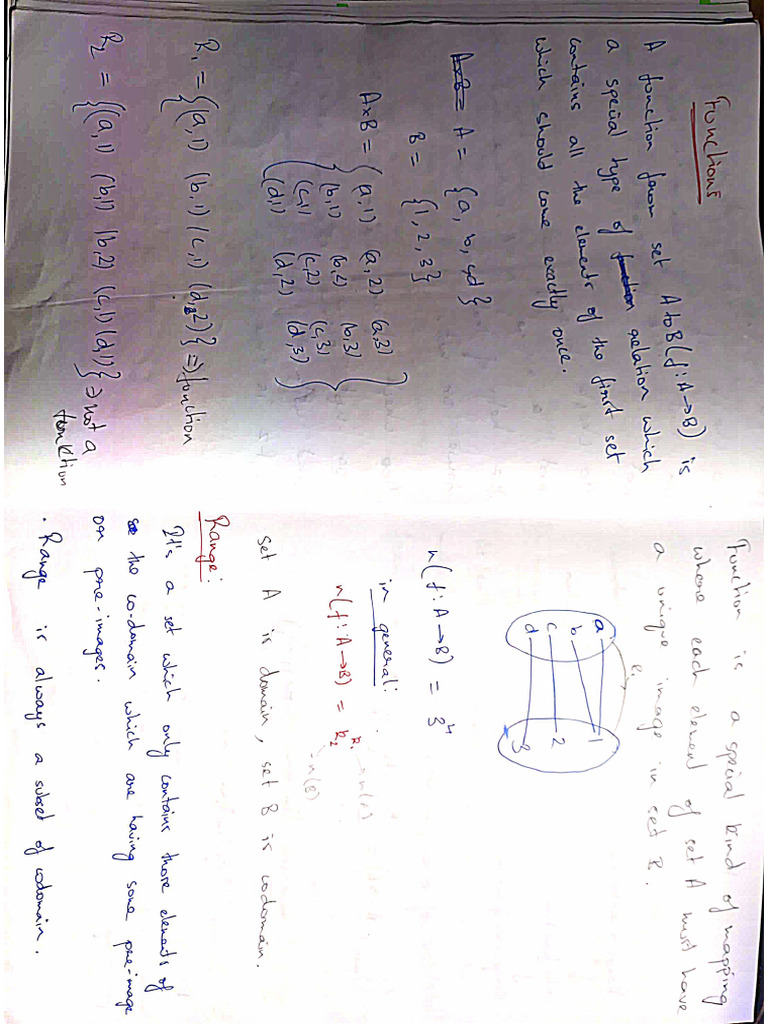 Functions
A function from set A to B (f: A→B) is
a special type of function relation which
contains all the elements of the first set
which should come exactly once.
A×B = A = {a, b, c, d}
B = {1, 2, 3}
A×B = {(a,1) (a,2) (a,3)
(b,1) (b,2) (b,3)
(c,1) (c,2) (c,3)
(d,1) (d,2) (d,3)}
R₁ = {(a,1) (b,1) (c,1) (d,2)} ⇒ function
R₂ = {(a,1) (b,1) (b,2) (c,1) (d,1)} ⇒ not a
function
Function is a special kind of mapping
where each element of set A must have
a unique image in set B.
R₁
a 1
b 2
c 3
d
n(f: A→B) = 3⁴
in general:
n(f: A→B) = k₂^k₁ → n(A)
→ n(B)
set A is domain, set B is codomain.
Range:
It's a set which only contains those elements of
the co-domain which are having some pre-image
or pre-images.
. Range is always a subset of codomain.